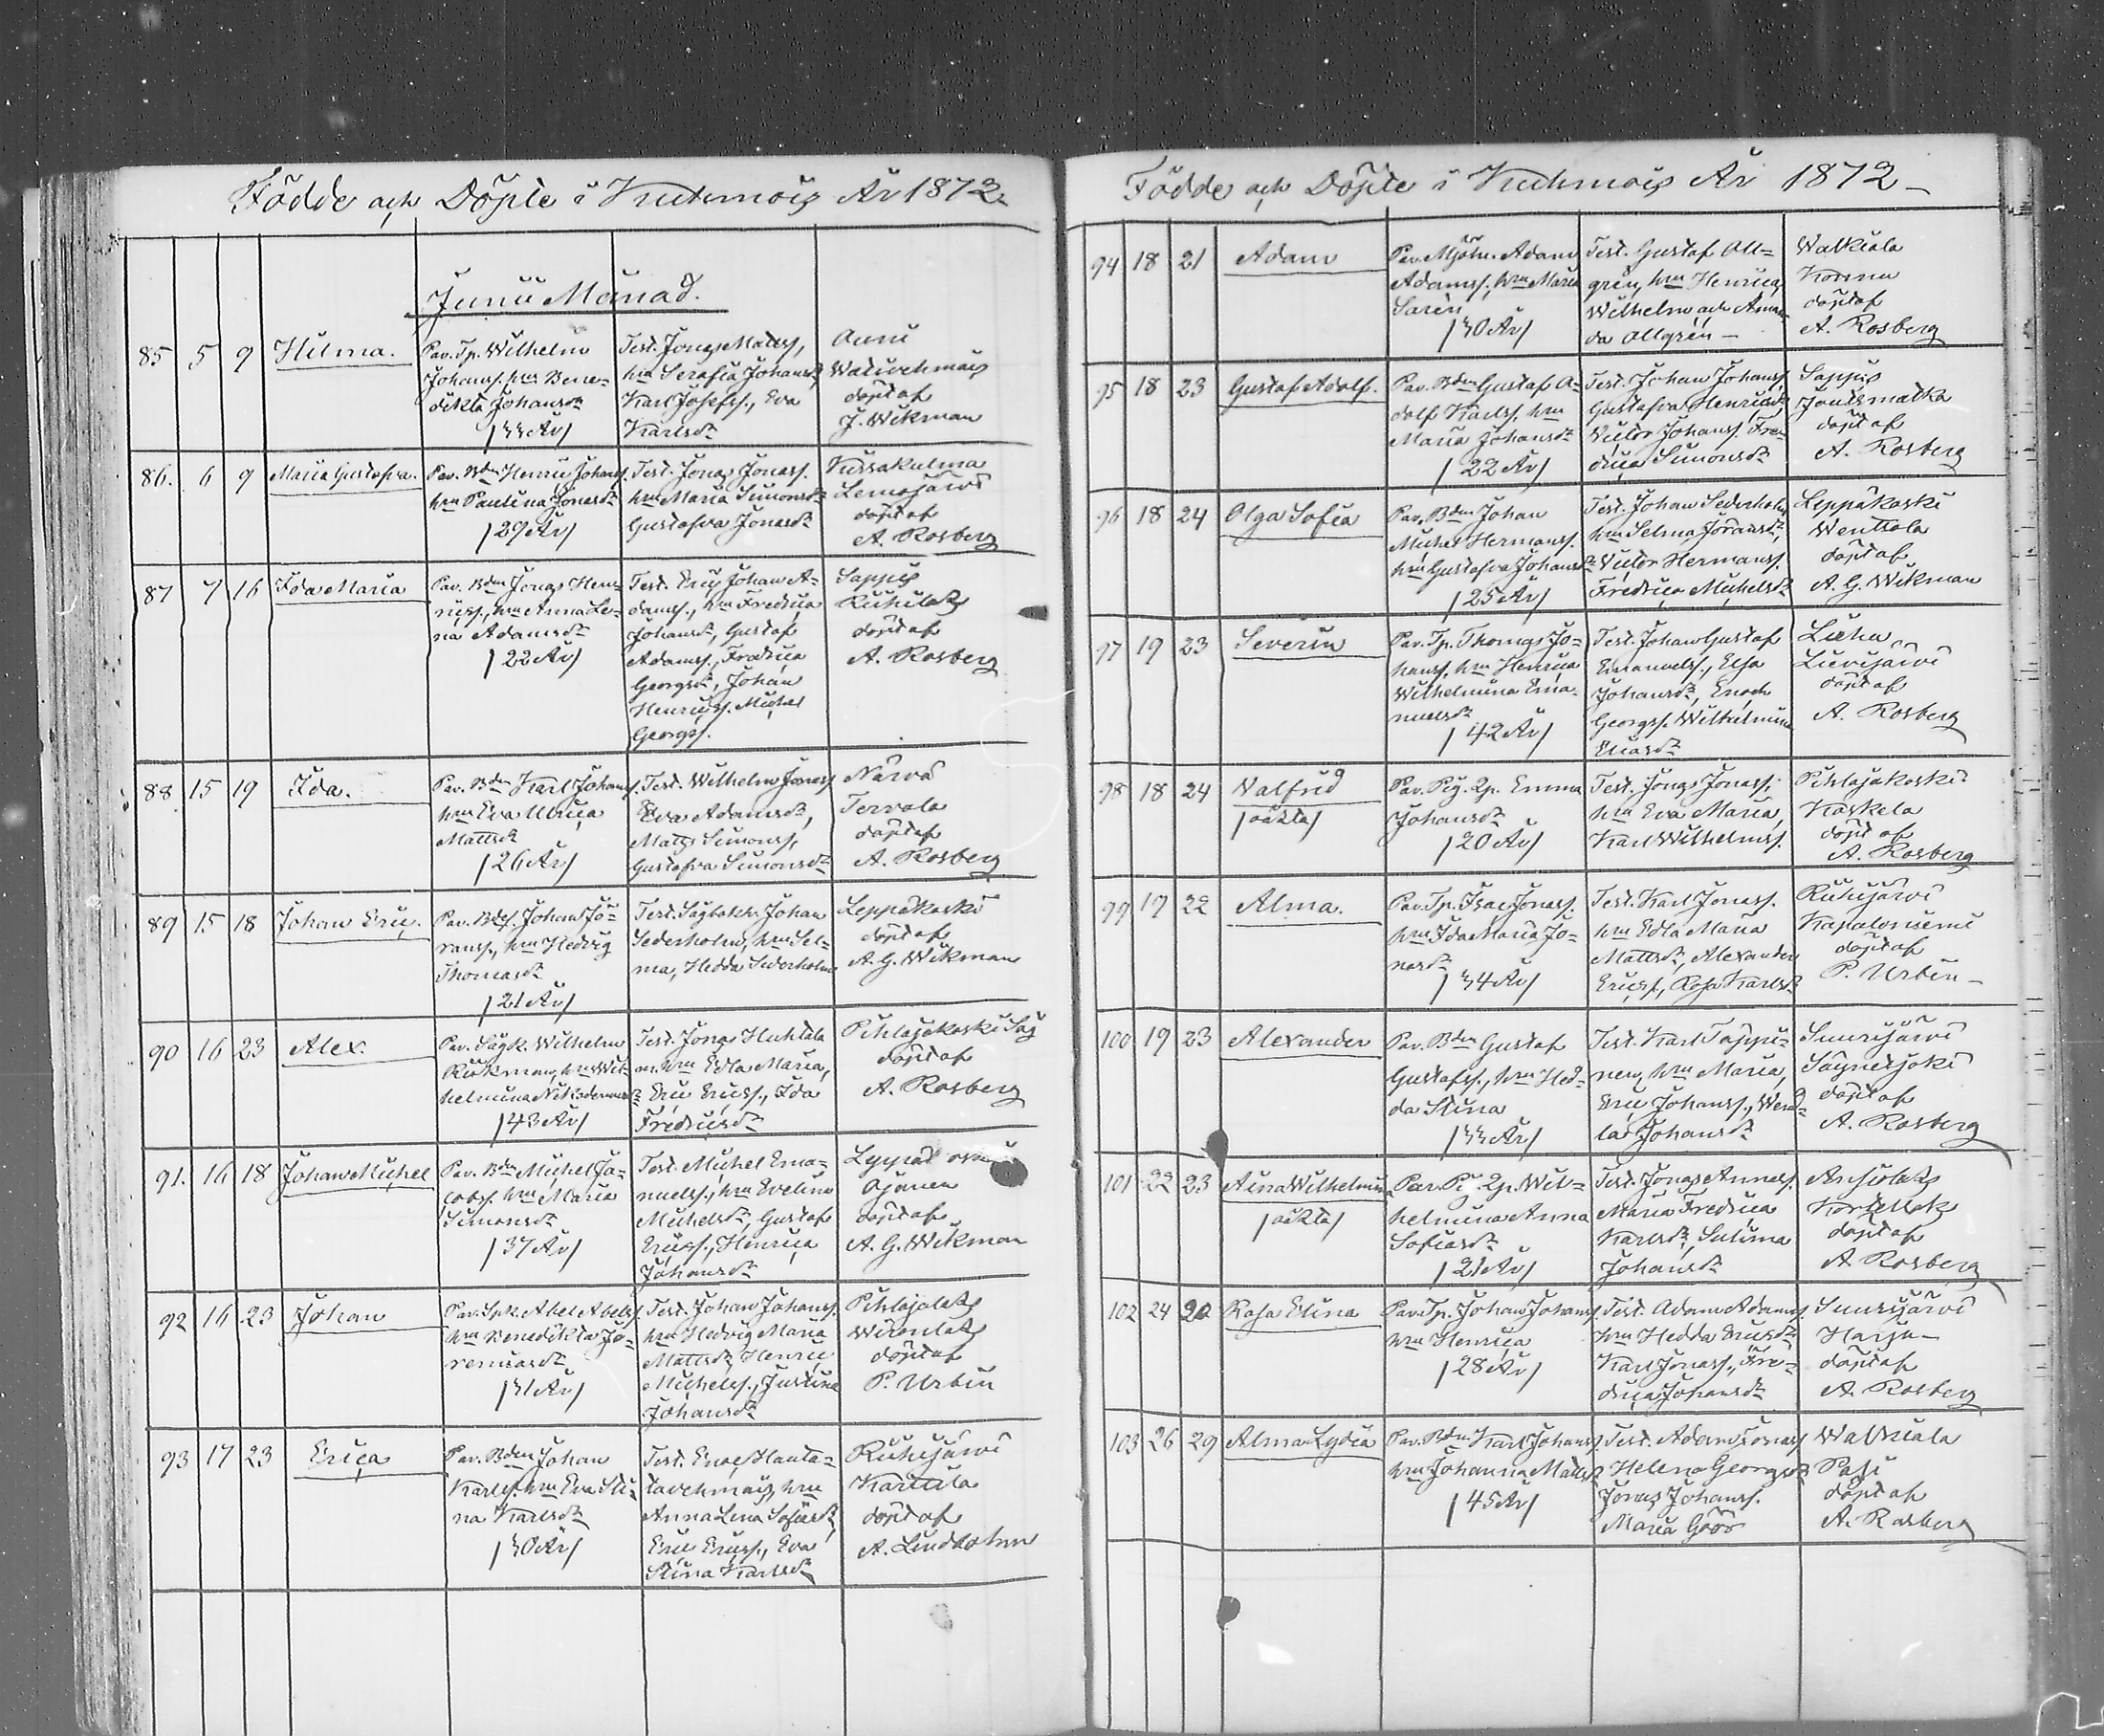 Födde och Döpte i Kuhmois År 1872.
Junii Månad.
85 5 9 Hilma.
Par. Tp. Wilhelm
Johanss. hm Bene-
dikta Johansdr
/33 År/
Test. Jonas Mattss,
hm Serafia Johansdr
Karl Josefss., Eva
Karlsdr
Anni
Wälivehmais
döpt af
J. Wikman
86. 6 9 Maria Gustafva.
Par. Bdn Henric Johanss.
hm Paulina Jonasdr
/29 År/
Test. Jonas Jonass.
hm Maria Simonsdr
Gustafva Jonasdr
Kissakulma
Lemojärvi
döpt af
A. Rosberg
87 7 16 Ida Maria
Par. Bdn Jonas Hen-
ricss., hm Anna Le-
na Adamsdr
/22 År/
Test. Eric Johan A-
damss., hm Fredrica
Johansdr, Gustaf
Adamss., Fredrica
Georgsdr, Johan
Henricss. Michel
Georgss.
Sappis
Kuhilaks
döpt af
A. Rosberg
88 15 19 Ida.
Par. Bdn Karl Johanss.
hm Eva Maria
Mattsdr
/26 År/
Test. Wilhelm Jonass
Eva Adamsdr,
Matts Simonss,
Gustafva Simonsdr
Närvä
Tervala
döpt af
A. Rosberg
89 15 18 Johan Eric.
Par. Bds. Johan Jö-
ranss., hm Hedvig
Thomasdr
/21 År/
Test. Sågbokh. Johan
Sederholm, hm Sel-
ma, Hedda Sederholm
Leppäkoski
döpt af
A. G. Wikman
90 16 23 Alex.
Par. Sågk. Wilhelm
Rickman, hm Wil-
helmina Nikodemusdr
/43 År/
Test. Jonas Huhtala
m. hm Edla Maria,
Eric Ericss., Ida
Fredricsdr
Pihlajakoski Såg
döpt af
A. Rosberg
91. 16 18 Johan Michel
Par. Bdn Michel Ja-
cobss. hm Maria
Simonsdr
/37 År/
Test. Michel Ema-
nuelss., hm Evelina
Michelsdr, Gustaf
Ericss., Henrica
Johansdr
Ojanen
döpt af
A. G. Wikman
92 16 23 Johan
Par. Spk. Abel Abelss.
hm Benedikta Jö-
rensdr
/31 År/
Test. Johan Johanss.
hm Hedvig Maria
Mattsdr, Henric
Michelss., Justina
Johansdr
Pihlajalaks
Wirenlaks
döpt af
P. Urbin
93 17 23 Erica
Par. Bdn Johan
Karlss. hm Eva Sti-
na Karlsdr
/30 År/
Test. Enoc Hauta-
lavehmais, hm
Anna Lena Sofiasdr
Eric Ericss., Eva
Stina Karlsdr
Ruhijärvi
Kartila
döpt af
A. Lindholm
Födde och Döpte i Kuhmois År 1872
94 18 21 Adam
Par. Mjöln. Adam
Adamss., hm Maria
Sarén
/30 År/
Test. Gustaf All-
grén, hm Henrica,
Wilhelm och Aman-
da Allgrén
Walkiala
Korina
döpt af
A. Rosberg
95 18 23 Gustaf Adolf.
Par. Bdn Gustaf A-
dolf Karlss. hm
Maria Johansdr
/22 År/
Test. Johan Johanss
Gustafva Henricsdr
Victor Johanss. Fre-
drica Simonsdr
Sappis
Joutsmatka
döpt af
A. Rosberg
96 18 24 Olga Sofia
Par. Bdn Johan
Michel Hermanss.
hm Gustafva Johansdr
/25 År/
Test. Johan Sederholm
hm Selma Göransdr,
Victor Hermanss.
Fredrica Michelsdr
Leppäkoski
Wenttola
döpt af
A. G. Wikman
97 19 23 Severin
Par. Tp. Thomas Jo-
hanss, hm Henrica
Wilhelmina Ema-
nuelsdr
/42 År/
Test. Johan Gustaf
Emanuelss., Elsa
Johansdr, Enoch
Georgss. Wilhelmina
Ericsdr
Lästä
Lievijärvi
döpt af
A. Rosberg
98 18 24 Walfrid
/oäkta/
Par. Pig. Qp. Emma
Johansdr
/20 År/
Test. Jonas Jonass,
hm Eva Maria,
Karl Wilhelmss.
Pihlajakoski
Kaskela
döpt af
A. Rosberg
99 19 22 Alma.
Par. Tp. Isac Jonass.
hm Ida Maria Jo-
nasdr
/34 År/
Test. Karl Jonass.
hm Edla Maria
Mattsdr, Alexander
Ericss., Rosa Karlsdr
Ruhijärvi
Kapaloniemi
döpt af
P. Urbin
100 19 23 Alexander
Par. Bdn Gustaf
Gustafss., hm Hed-
da Stina
/33 År/
Test. Karl Tappi-
nen, hm Maria,
Eric Johanss., Wend-
la Johansdr
Suurijärvi
Säynetjoki
döpt af
A. Rosberg
101 22 23 Aina Wilhelmina
/oäkta/
Par. Pig. Qp. Wil-
helmina Anna
Sofiasdr
/21 År/
Test. Jonas Annass.
Maria Fredrica
Karlsdr, Sulima
Johansdr
Arsiolaks
Kortelaks
döpt af
A. Rosberg
102 24 29 Rosa Elina
Par. Tp. Johan Johanss
hm Henrica
/28 År/
Test. Adam Adamss.
hm Hedda Ericsdr
Karl Jonass., Fre-
drica Johansdr
Suurijärvi
Harju
döpt af
A. Rosberg
103 26 29 Alma Lydia
Par. Bdn Karl Johanss
hm Johanna Mattsdr
/45 År/
Test. Adam Jonass
Helena Georgsdr
Jonas Johanss.
Maria Göös
Walkiala
Pasi
döpt af
A. Rosberg